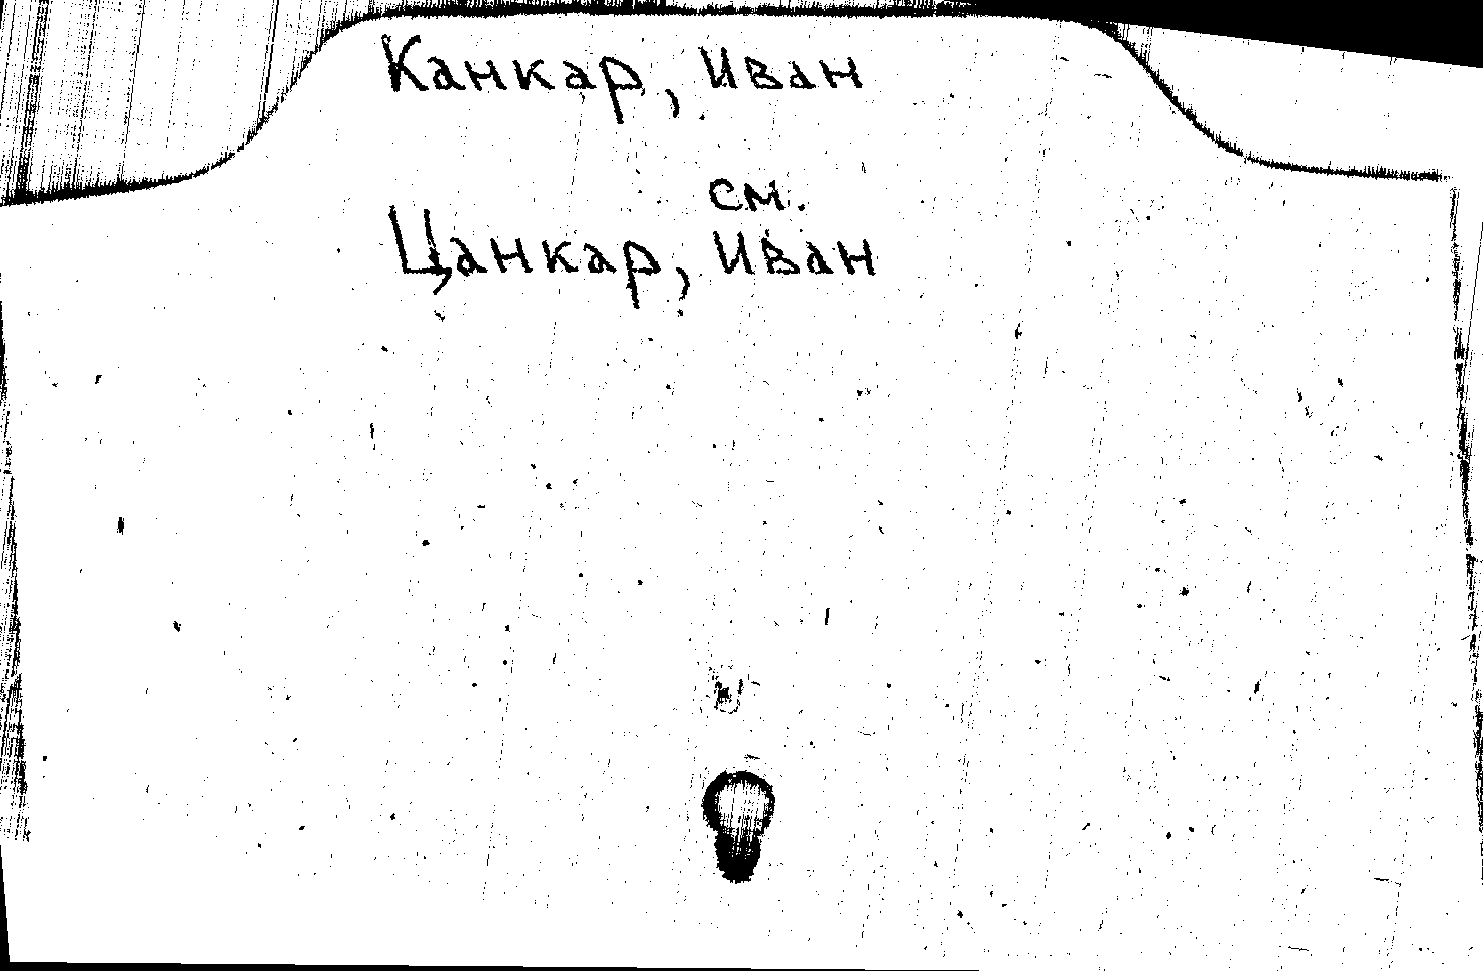 Канкар, Иван
см.
Цанкар, Иван